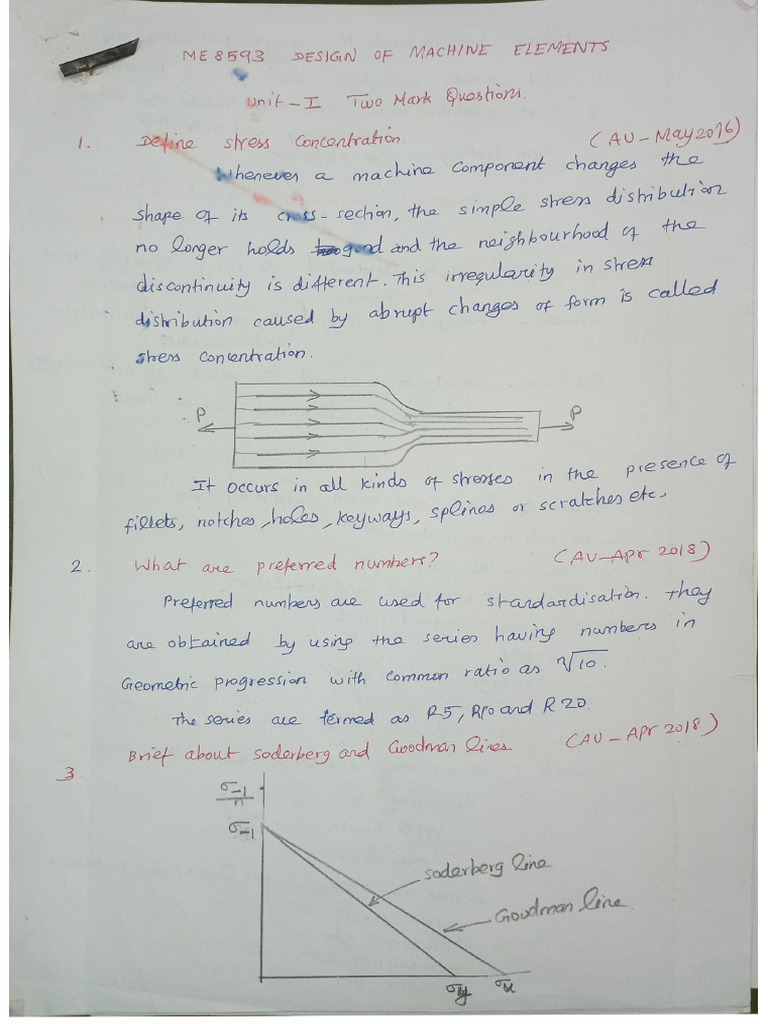 ME8593 DESIGN OF MACHINE ELEMENTS
Unit-I Two Mark Questions.
1. Define stress concentration (AU-May 2016)
Whenever a machine component changes the
shape of its cross-section, the simple stress distribution
no longer holds good and the neighbourhood of the
discontinuity is different. This irregularity in stress
distribution caused by abrupt changes of form is called
stress concentration.
P P
It occurs in all kinds of stresses in the presence of
fillets, notches, holes, keyways, splines or scratches etc.
2. What are preferred numbers? (AU-Apr 2018)
Preferred numbers are used for standardisation. They
are obtained by using the series having numbers in
Geometric progression with common ratio as ⁿ√10.
The series are termed as R5, R10 and R20.
3 Brief about soderberg and Goodman lines. (AU-APr 2018)
σ-1/n
σ-1
soderberg line
Goodman line.
σy σu